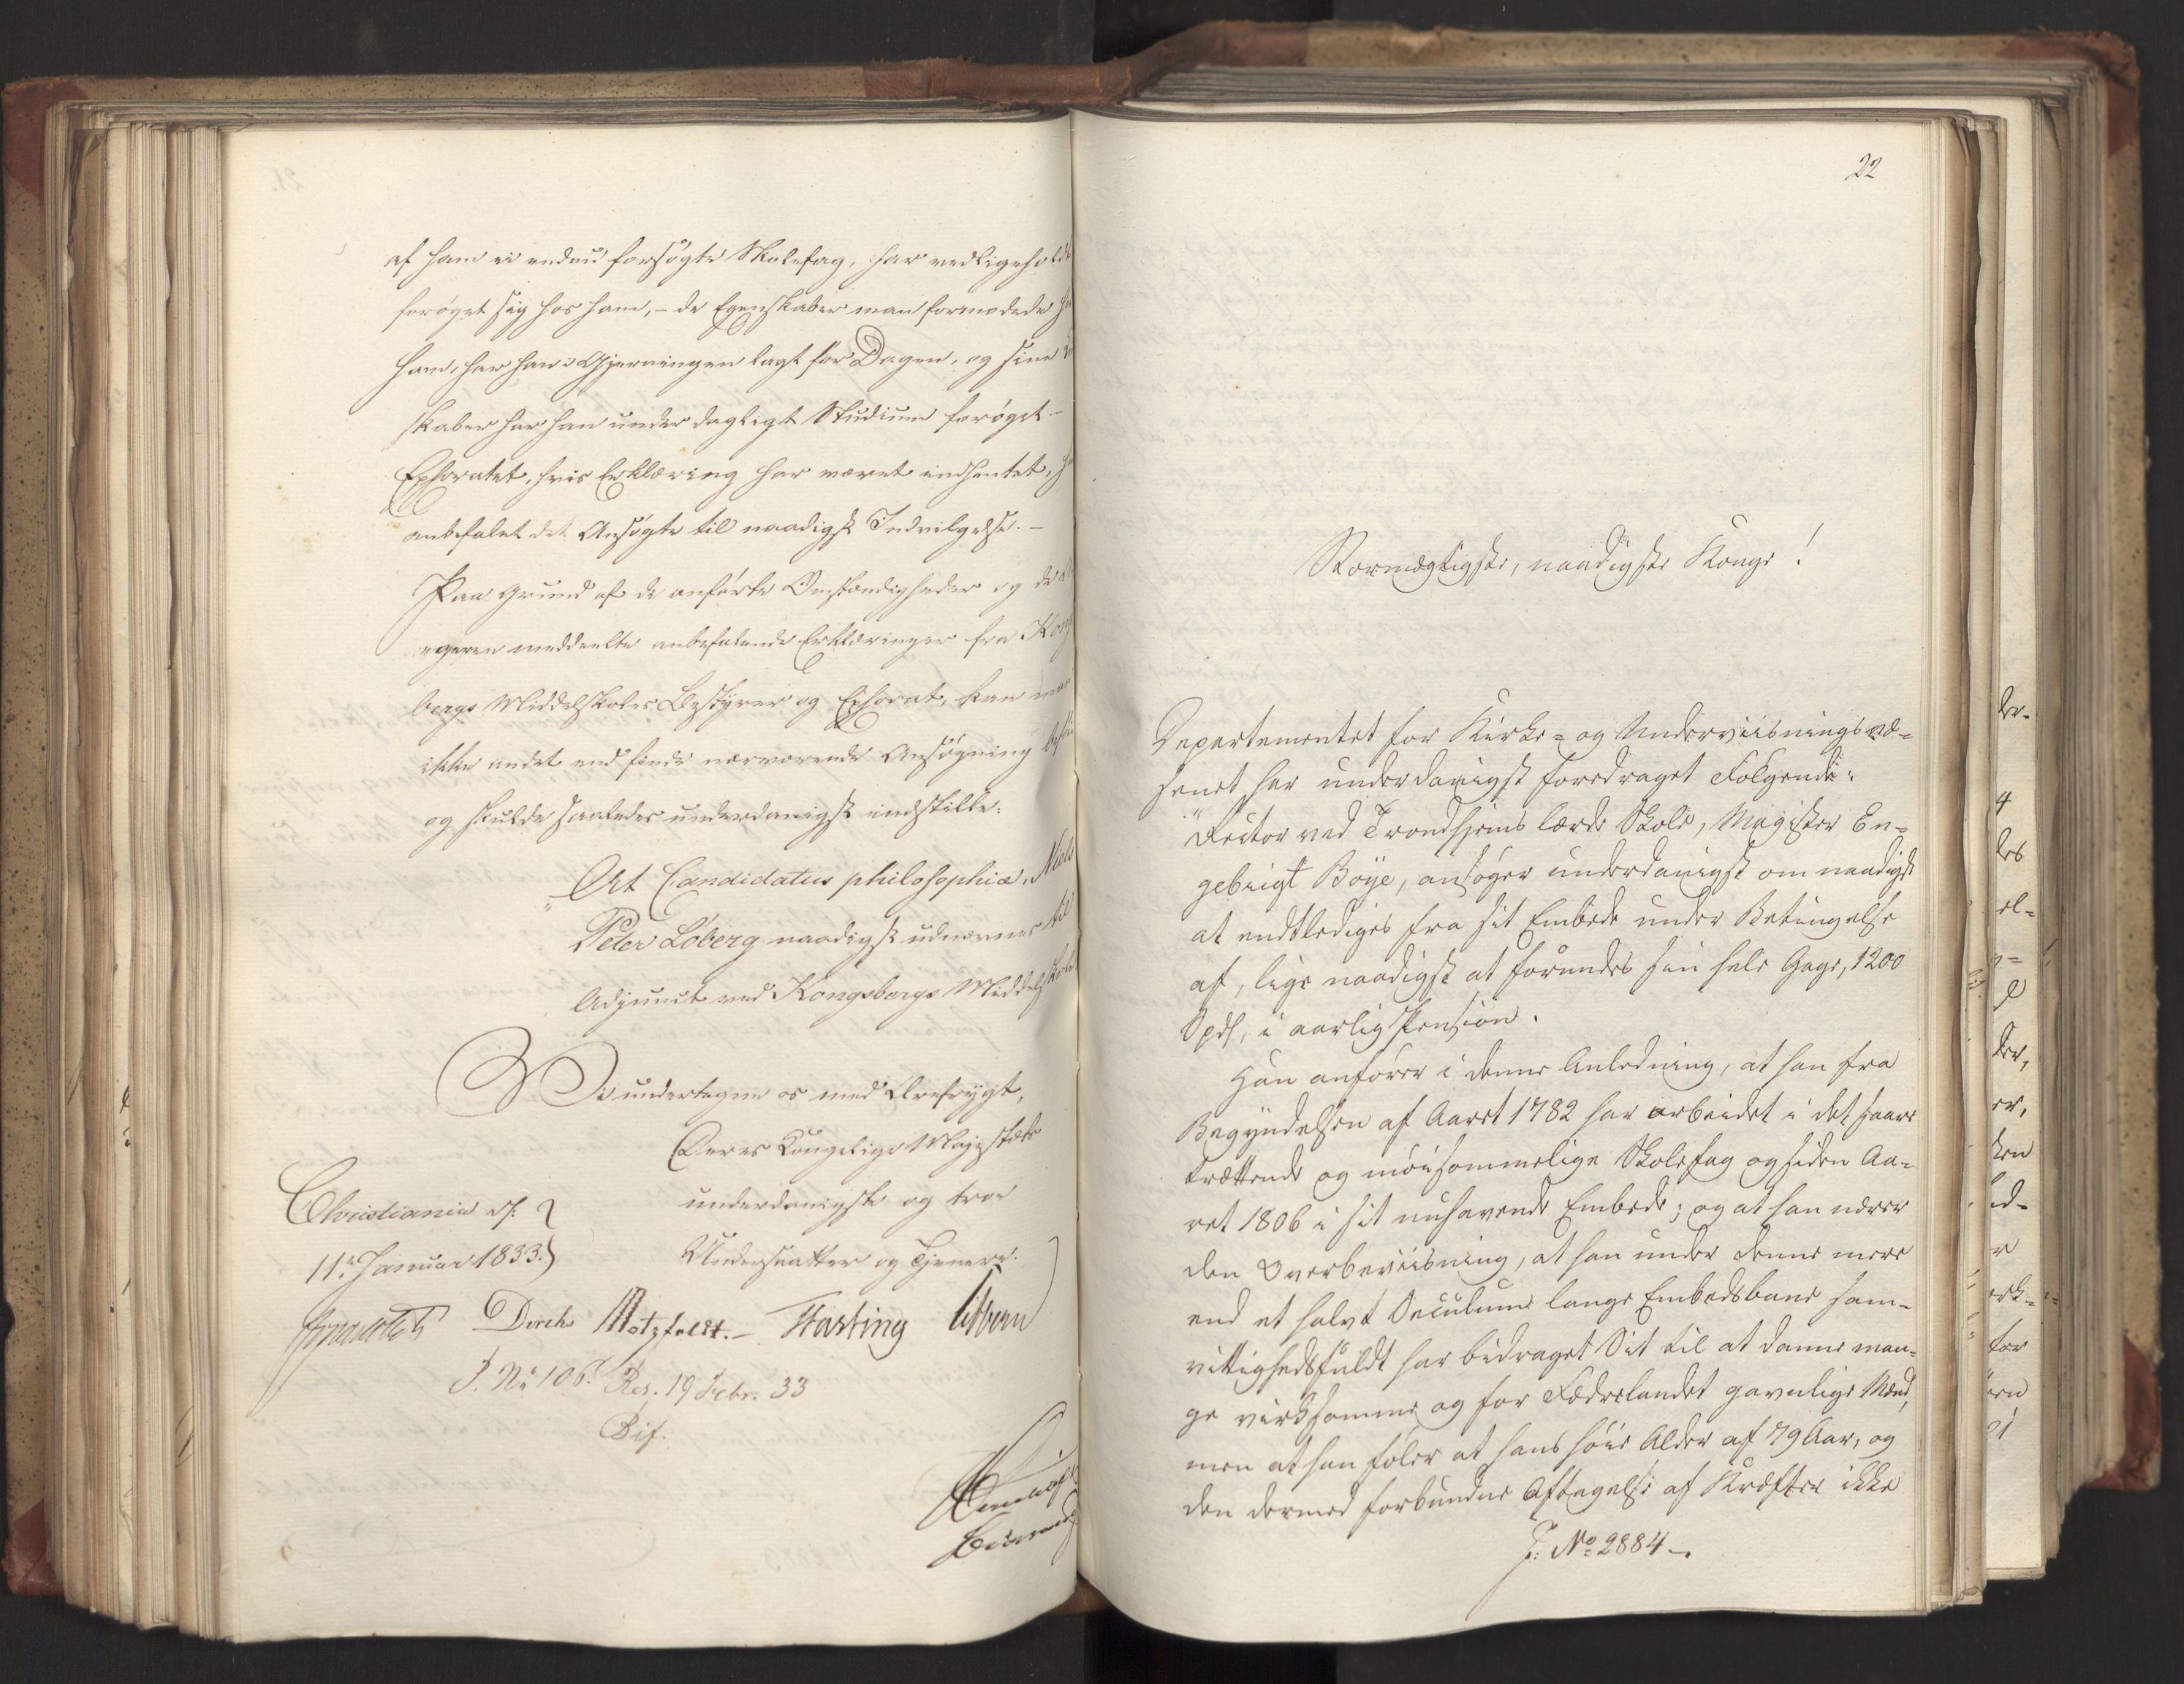 af ham ei endnu forsøgte Skolefag, har vedligeholdt
forøget sig hos ham, - de Egenskaber man formodede
ham, har han i Gjerningen lagt for Dagen, og sine
skaber har han under dagligt Studium forøget. -
Ephoratet, hvis Erklæring har været indhentet,
anbefalet det Ansøgte til naadigst Indvilgelse. -
Paa Grund af de anførte Omstændigheder og de
ageren meddeelte anbefalende Erklæringer fra Kong
bergs Middelskoles Bestyrer og Ephorat, kan man
ikke andet end finde nærværende Ansøgning
og skulde saaledes underdanigst indstille:
"At Candidatus philosophiæ, Niels
Peter Löberg naadigst udnævnes til
Adjunct ved Kongsbergs Middelskole
Vi undertegne os med Ærefrygt,
Deres Kongelige Majestæts
underdanigste og troe
Undersaatter og Tjenere.
Christiania d.
11te Januar 1833.
Diriks Motzfeldt. - Fasting
J. No 106. Res. 19 Febr. 33
Bif.
22
Stormægtigste, naadigste Konge!
Departementet for Kirke- og Underviisningsvæ-
senet har underdanigst foredraget Følgende:
"Rector ved Trondhjems lærde Skole, Magister En-
gebrigt Boye, ansøger underdanigst om naadigst
at entlediges fra sit Embede under Betingelse
af, lige naadigst at forundes sin hele Gage, 1200
Spdl, i aarlig Pension.
Han anfører i denne Anledning, at han fra
Begyndelsen af Aaret 1782 har arbeidet i det saare
trættende og møisommelige Skolefag og siden Aa-
ret 1806 i sit nuhavende Embede; og at han nærer
den Overbeviisning, at han under denne mere
end et halvt Seculums lange Embedsbane sam-
vittighedsfuldt har bidraget Sit til at danne man-
ge virksomme og for Fædrelandet gavnlige Mænd,
men at han føler at hans høie Alder af 79 Aar, og
den dermed forbundne Aftagelse af Kræfter ikke
J: No 2884 -.